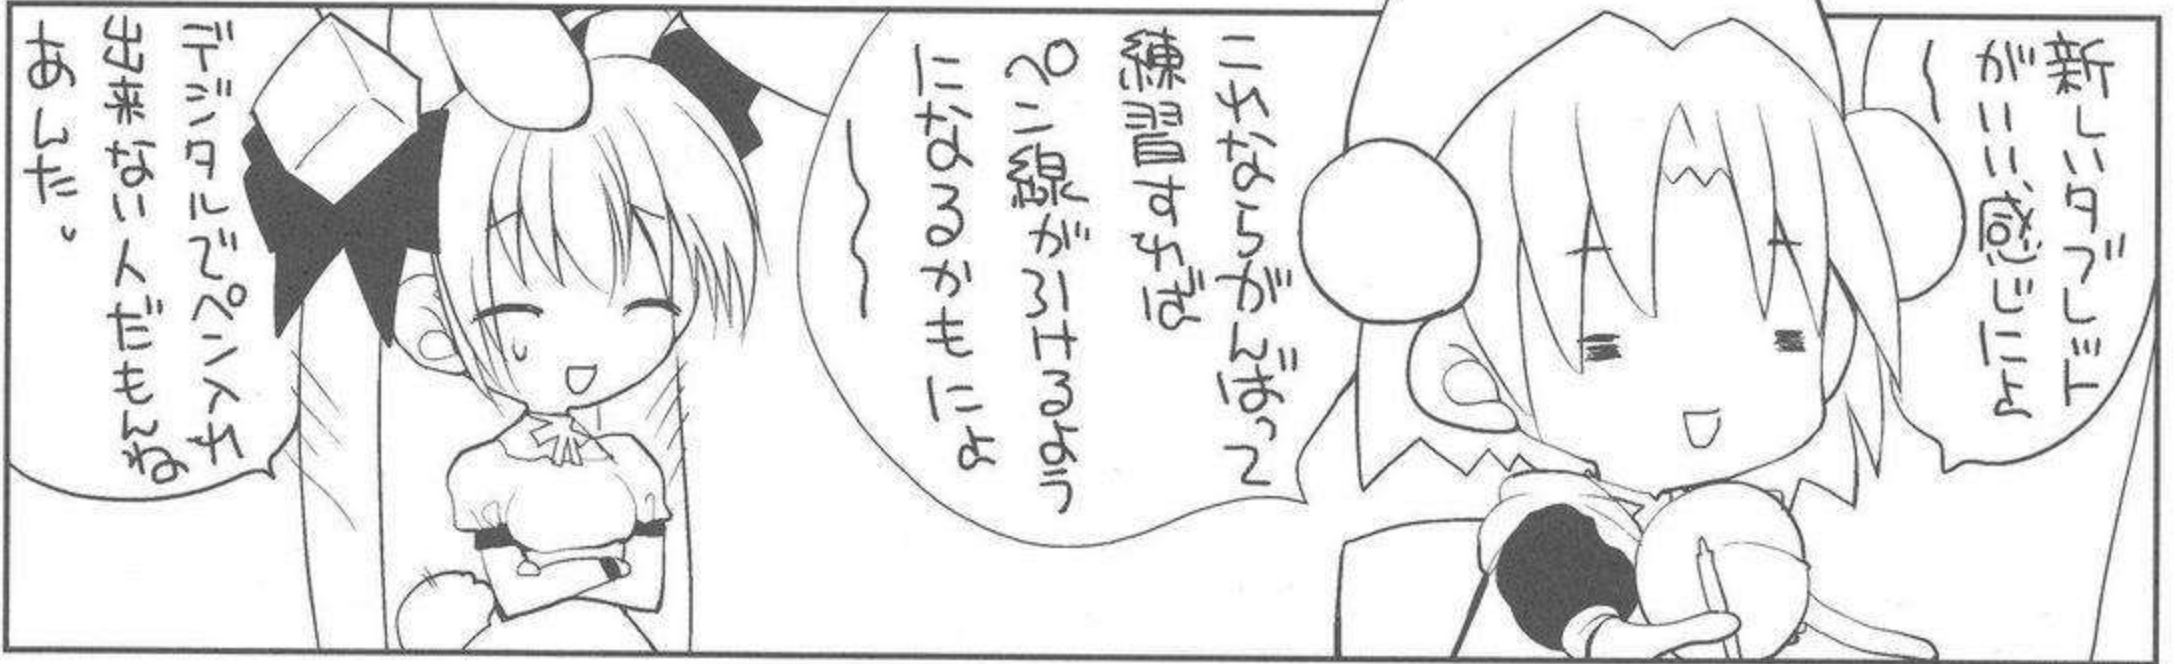 新しいタブレット
がいい感じにょ
〜
これならがんばって
練習すれば
ペン線がひけるよう
になるかもにょ
〜
デジタルでペン入れ
出来ない人だもんね
あんた。